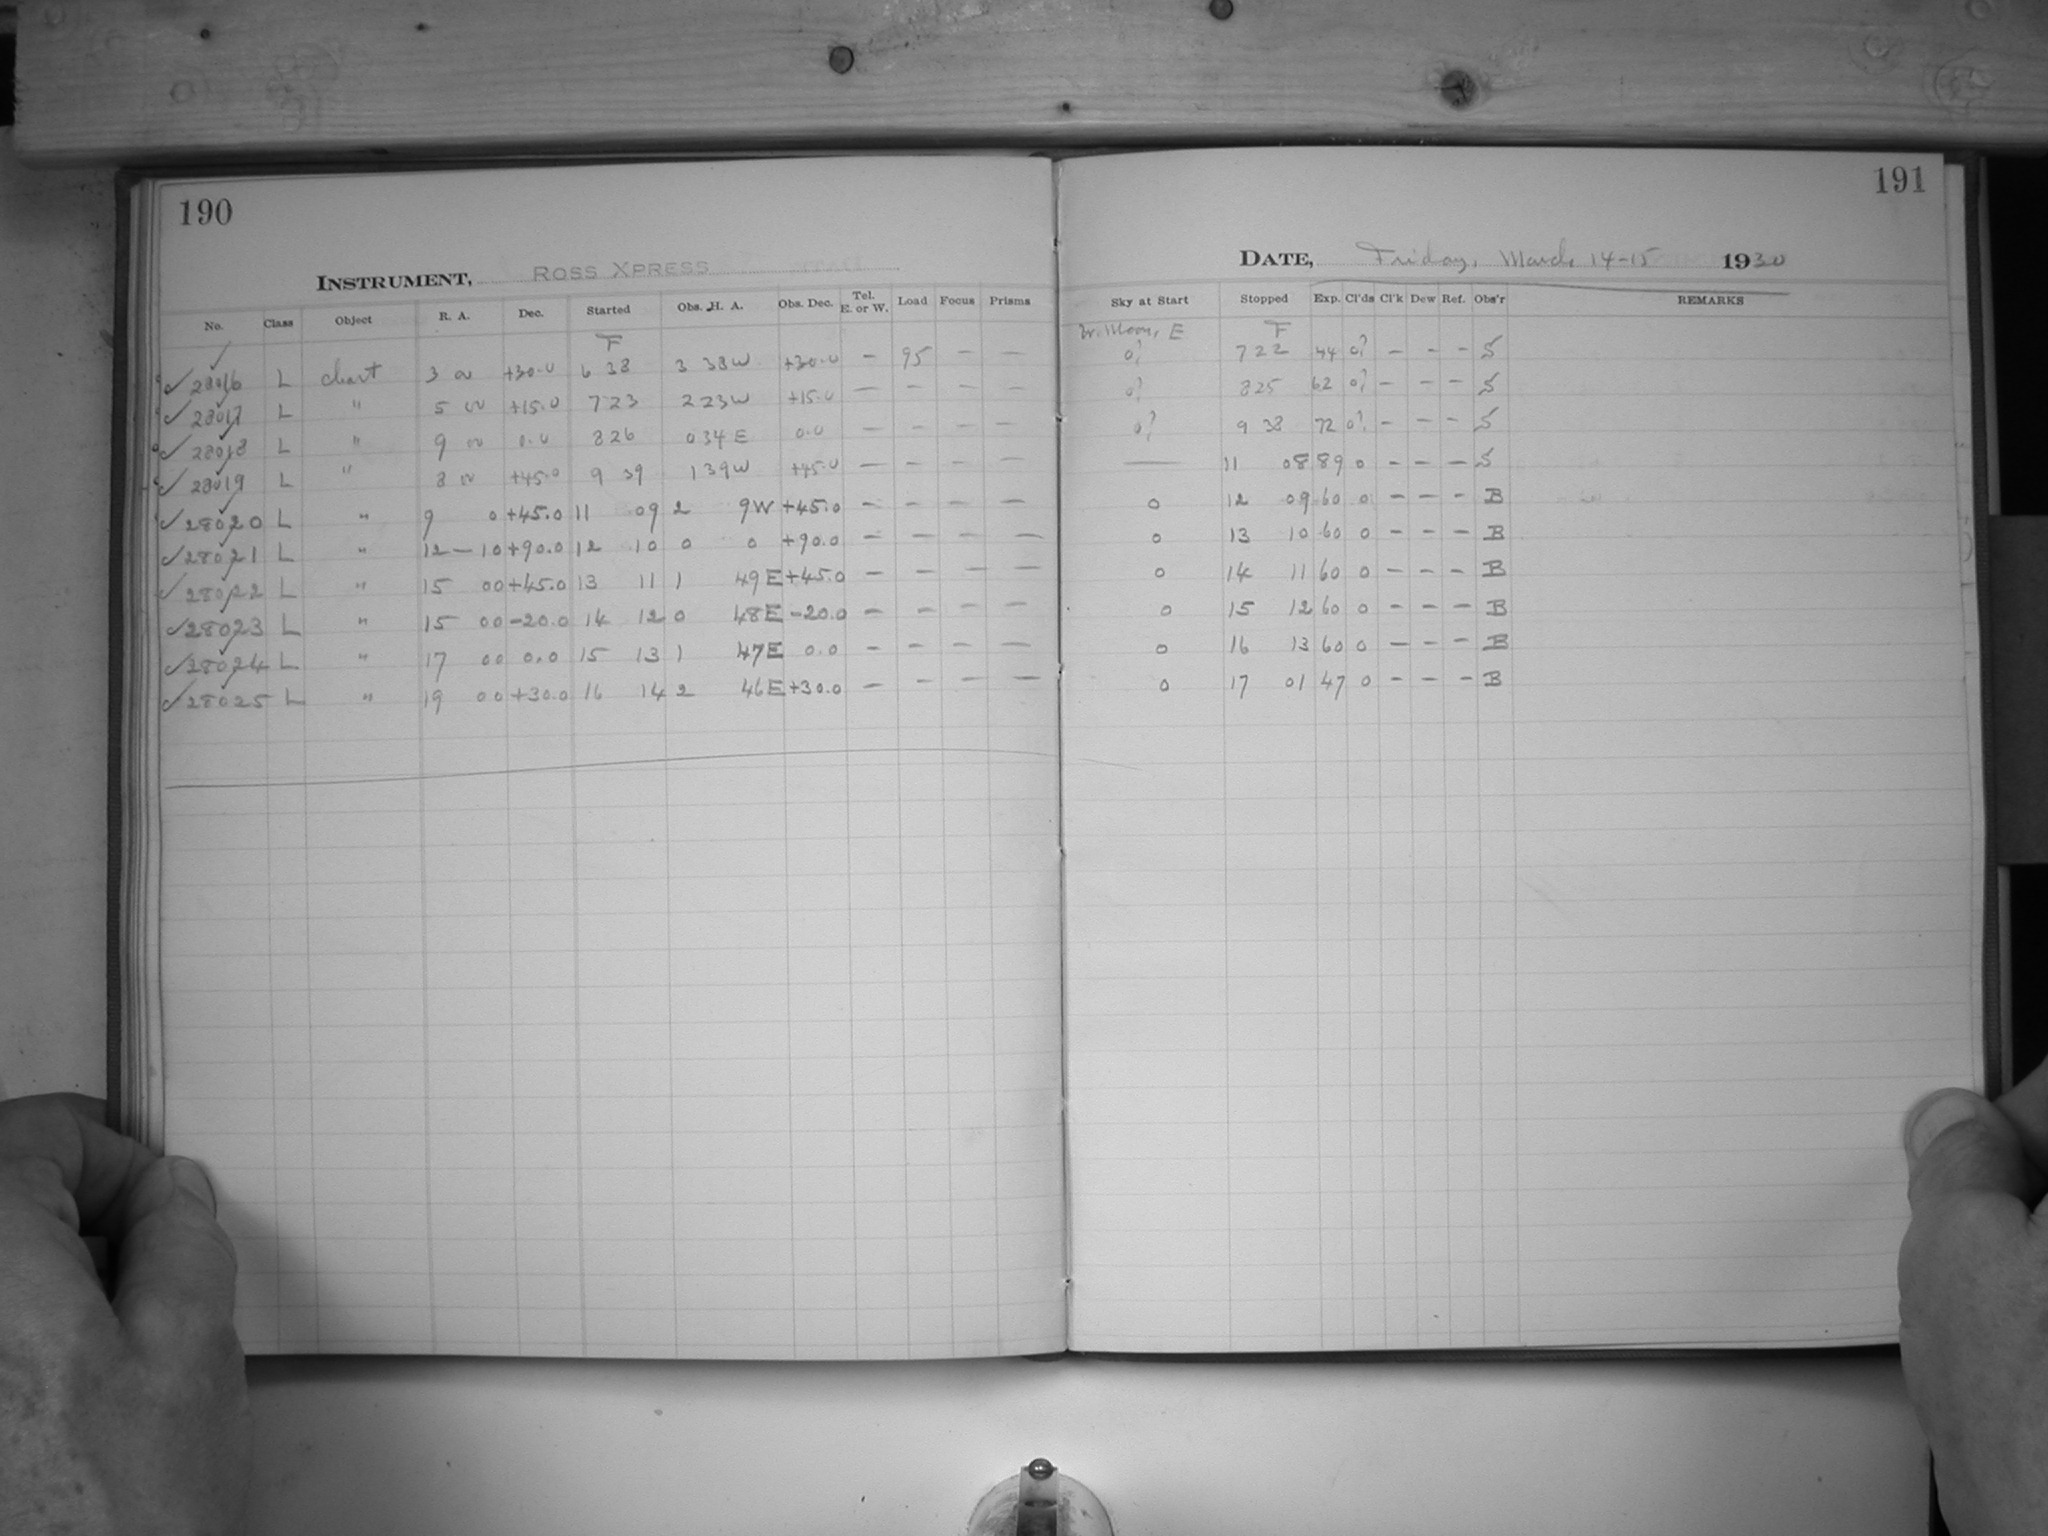 190
INSTRUMENT, ROSS XPRESS
No. Class Object R. A. Dec. Started Obs. H. A. Obs. Dec. Tel. E. or W. Load Focus Prisms
F
✓ 28016 L chart 3 00 +30.0 6 38 3 38W +30.0 — 95 — —
✓ 28017 L " 5 00 +15.0 7 23 2 23W +15.0 — — — —
✓ 28018 L " 9 00 0.0 8 26 0 34 E 0.0 — — — —
✓ 28019 L " 8 00 +45.0 9 39 1 39W +45.0 — — — —
✓ 28020 L " 9 0 +45.0 11 09 2 9W +45.0 — — — —
✓ 28021 L " 12 — 10 +90.0 12 10 0 0 +90.0 — — — —
✓ 28022 L " 15 00 +45.0 13 11 1 49 E +45.0 — — — —
✓ 28023 L " 15 00 -20.0 14 12 0 48E -20.0 — — — —
✓ 28024 L " 17 00 0.0 15 13 1 47E 0.0 — — — —
✓ 28025 L " 19 00 +30.0 16 14 2 46 E +30.0 — — — —
191
DATE, Friday, March 14-15 1930
Sky at Start Stopped Exp. Cl'ds Cl'k Dew Ref. Obs'r REMARKS
Moon, E F
0? 7 22 44 0? — — — S
0? 8 25 62 0? — — — S
0? 9 38 72 0? — — — S
— 11 08 89 0 — — — S
0 12 09 60 0 — — — B
0 13 10 60 0 — — — B
0 14 11 60 0 — — — B
0 15 12 60 0 — — — B
0 16 13 60 0 — — — B
0 17 01 47 0 — — — B